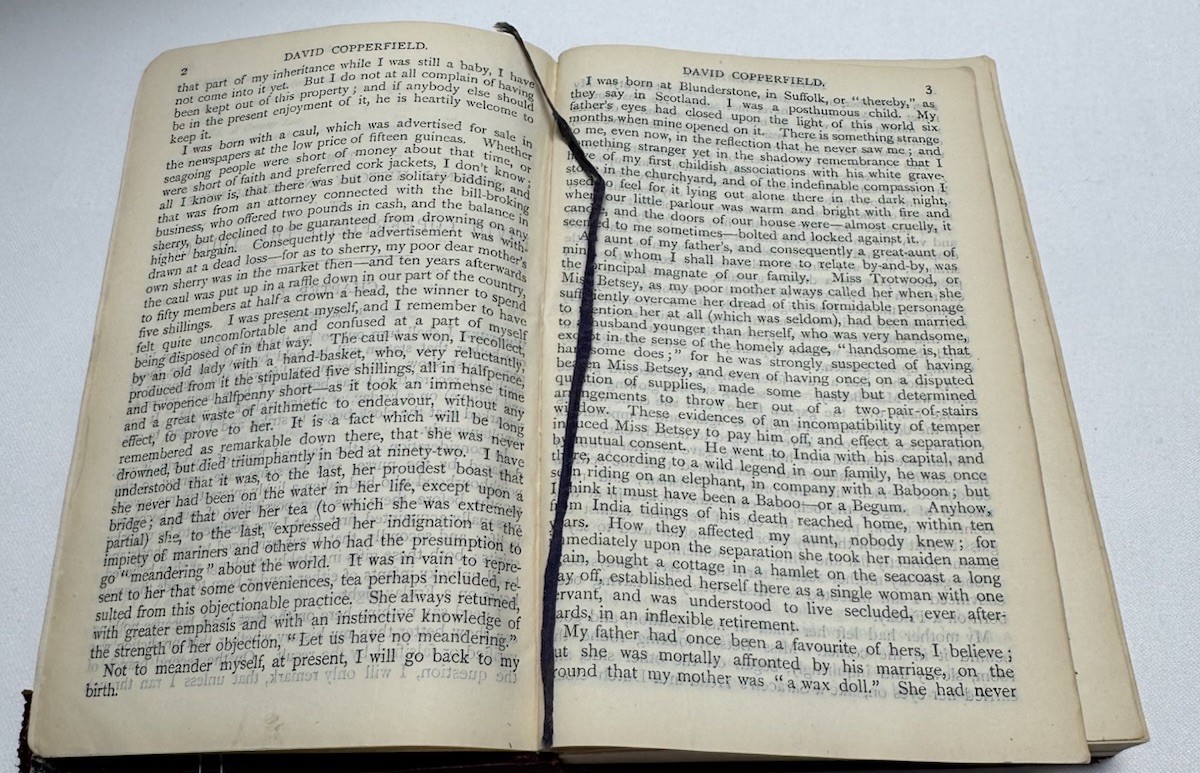 2
DAVID COPPERFIELD.
that part of my inheritance while I was still a baby, I have
not come into it yet. But I do not at all complain of having
been kept out of this property; and if anybody else should
be in the present enjoyment of it, he is heartily welcome to
keep it.
I was born with a caul, which was advertised for sale in
the newspapers at the low price of fifteen guineas. Whether
seagoing people were short of money about that time, or
were short of faith and preferred cork jackets, I don't know;
all I know is, that there was but one solitary bidding, and
that was from an attorney connected with the bill-broking
business, who offered two pounds in cash, and the balance in
sherry, but declined to be guaranteed from drowning on any
higher bargain. Consequently the advertisement was with-
drawn at a dead loss—for as to sherry, my poor dear mother's
own sherry was in the market then—and ten years afterwards
the caul was put up in a raffle down in our part of the country,
to fifty members at half a crown a head, the winner to spend
five shillings. I was present myself, and I remember to have
felt quite uncomfortable and confused at a part of myself
being disposed of in that way. The caul was won, I recollect,
by an old lady with a hand-basket, who, very reluctantly,
produced from it the stipulated five shillings, all in halfpence,
and twopence halfpenny short—as it took an immense time
and a great waste of arithmetic to endeavour, without any
effect, to prove to her. It is a fact which will be long
remembered as remarkable down there, that she was never
drowned, but died triumphantly in bed at ninety-two. I have
understood that it was, to the last, her proudest boast that
she never had been on the water in her life, except upon a
bridge; and that over her tea (to which she was extremely
partial) she, to the last, expressed her indignation at the
impiety of mariners and others who had the presumption to
go "meandering" about the world. It was in vain to repre-
sent to her that some conveniences, tea perhaps included, re-
sulted from this objectionable practice. She always returned,
with greater emphasis and with an instinctive knowledge of
the strength of her objection, "Let us have no meandering."
Not to meander myself, at present, I will go back to my
birth.
DAVID COPPERFIELD.
3
I was born at Blunderstone, in Suffolk, or "thereby," as
they say in Scotland. I was a posthumous child. My
father's eyes had closed upon the light of this world six
months when mine opened on it. There is something strange
to me, even now, in the reflection that he never saw me; and
something stranger yet in the shadowy remembrance that I
have of my first childish associations with his white grave-
stone in the churchyard, and of the indefinable compassion I
used to feel for it lying out alone there in the dark night,
when our little parlour was warm and bright with fire and
candle, and the doors of our house were—almost cruelly, it
seemed to me sometimes—bolted and locked against it.
An aunt of my father's, and consequently a great-aunt of
mine, of whom I shall have more to relate by-and-by, was
the principal magnate of our family. Miss Trotwood, or
Miss Betsey, as my poor mother always called her when she
sufficiently overcame her dread of this formidable personage
to mention her at all (which was seldom), had been married
to a husband younger than herself, who was very handsome,
except in the sense of the homely adage, "handsome is, that
handsome does;" for he was strongly suspected of having
beaten Miss Betsey, and even of having once, on a disputed
question of supplies, made some hasty but determined
arrangements to throw her out of a two-pair-of-stairs
window. These evidences of an incompatibility of temper
induced Miss Betsey to pay him off, and effect a separation
by mutual consent. He went to India with his capital, and
there, according to a wild legend in our family, he was once
seen riding on an elephant, in company with a Baboon; but
I think it must have been a Baboo—or a Begum. Anyhow,
from India tidings of his death reached home, within ten
years. How they affected my aunt, nobody knew; for
immediately upon the separation she took her maiden name
again, bought a cottage in a hamlet on the seacoast a long
way off, established herself there as a single woman with one
servant, and was understood to live secluded, ever after-
wards, in an inflexible retirement.
My father had once been a favourite of hers, I believe;
but she was mortally affronted by his marriage, on the
ground that my mother was "a wax doll." She had never